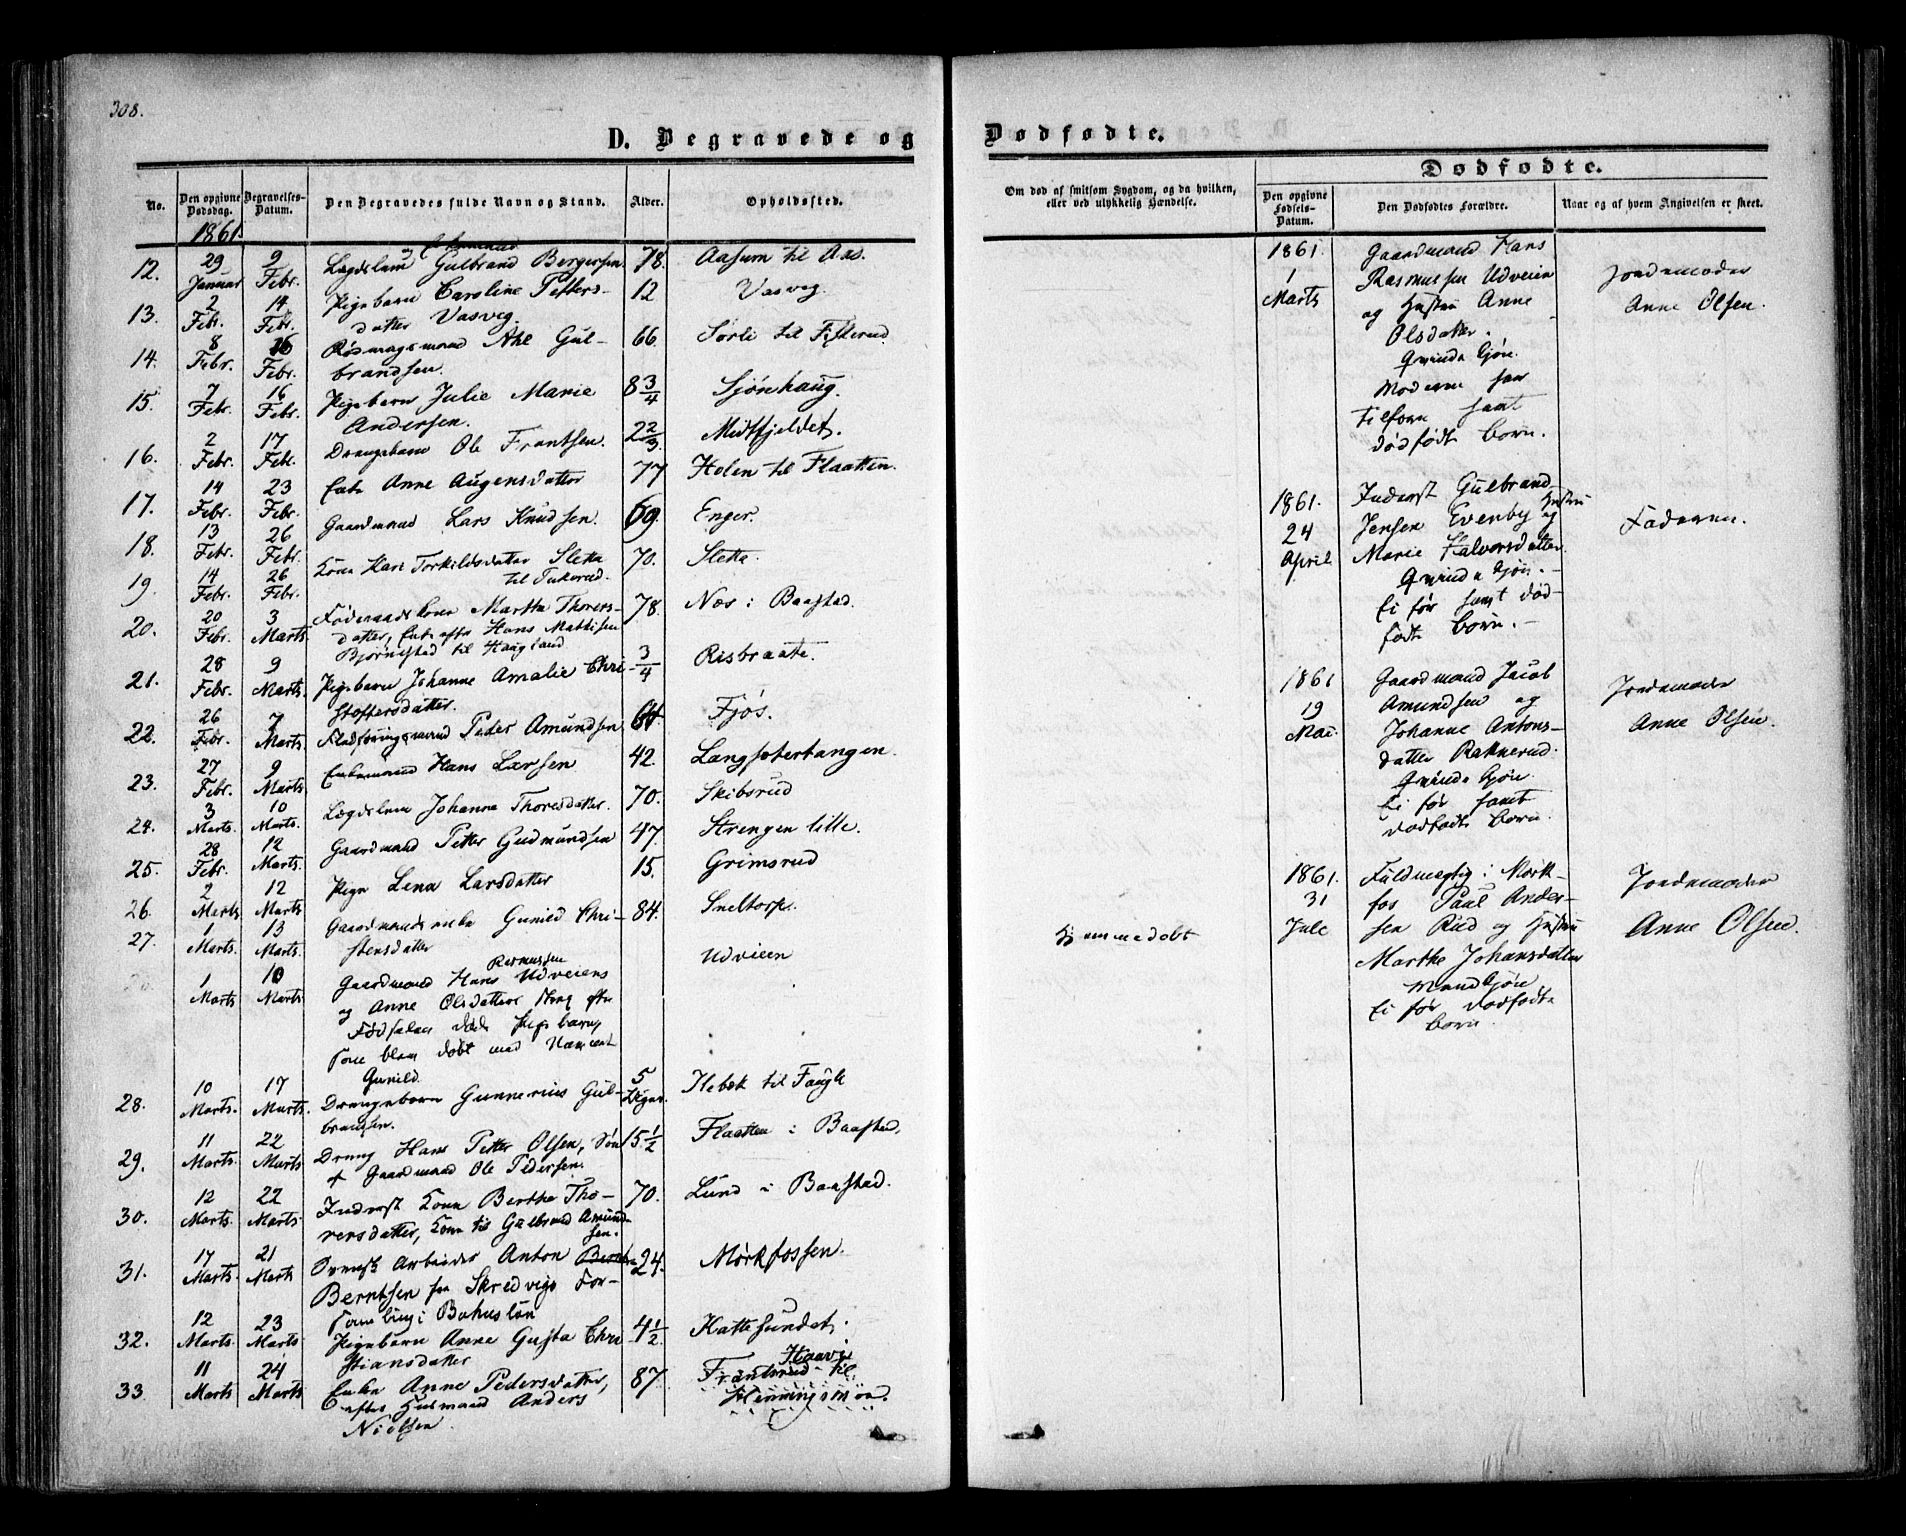 308.
D. Begravede og
Dødfødte.
No.
Den opgivne Dødsdag.
Begravelses-Datum.
Den Begravedes fulde Navn og Stand.
Alder.
Opholdssted.
1861.
12. 29 Januar 9 Febr. Lægdslem Gulbrand Bergersen 78. Aasum til Aas
13. 2 Febr. 14 Febr. Pigebarn Caroline Petters- 12 Vasvig
datter Vasvig.
14. 8 Febr. 16 Febr. Gul- 66. Sørli til Fisterud
brandsen.
15. 7 Febr. 16 Febr. Pigebarn Julie Marie 8 3/4 Sjönhaug.
Andersen.
16. 2 Febr. 17 Febr. Drengebarn Ole Frantsen. 2 2/3 Midtfjeldet.
17. 14 Febr. 23 Febr. Enke Anne Augensdatter 77 Holen til Flaatten.
18. 13 Febr. 26 Febr. Gaardmand Lars Knudsen. 69. Enger.
19. 14 Febr. 26 Febr. Kone Kari Torkildsdatter Slette 70. Slette.
til Tukerud.
20. 20 Febr. 3 Marts Føderaadskone Martha Thorers- 78. Næs i Baastad.
datter, Enke efter Hans Mathisen
Bjørnstad til Haugsund
21. 28 Febr. 9 Marts. Pigebarn Johanne Amalie Chri- 3/4 Risbraate.
stoffersdatter.
22. 26 Febr. 7 Marts. Fladføringsmand Peder Amundsen 64. Fjøs.
23. 27 Febr. 9 Marts. Enkemand Hans Larsen 42. Langsætertangen.
24. 3 Marts. 10 Marts. Lægdslem Johanne Thoresdatter. 70. Skibsrud
25. 28 Febr. 12 Marts. Gaardmand Petter Gudmundsen 47. Strengen lille.
26. 2 Marts 12 Marts Pige Lena Larsdatter 15. Grimsrud
27. 1 Marts. 13 Marts. Gaardmandsenke Gunild Chri- 84. Sneltorp.
stensdatter
1 Marts 10 Marts Gaardmand Hans Rasmussen Udveiens Udveien
og Anne Olsdatters strax efter
Fødselen døde Pigebarn,
som blev døbt med Navnet
Gunild.
28. 10 Marts. 17 Marts. Drengebarn Gunnerius Gul- 5 Dage. Ilebæk til Faugli
brandsen.
29. 11 Marts. 22 Marts Dreng Hans Petter Olsen, Søn 15 1/2 Flaatten i Baastad.
af Gaardmand Ole Pedersen.
30. 12 Marts. 22 Marts. Inderst Kone Berthe Tho- 70. Lund i Baastad.
rersdatter, Kone til Gulbrand Amund-
sen.
31. 17 Marts. 21 Marts Svensk Arbeider Anton 24. Mørkfossen.
Berntsen fra Skredvigs For-
samling i Bohuslän
32. 12 Marts. 23 Marts Pigebarn Anne Gusta Chri- 4 1/2 Kattesundet.
stiansdatter
33 11 Marts 24 Marts. Enke Anne Pedersdatter, 87. Frantsrud til
efter Huusmand Anders Henningsmoen.
Nielsen.
Om død af smitsom Sygdom, og da hvilken,
eller ved ulykkelig Hændelse.
Dødfødte.
Den opgivne Fødsels-Datum.
Den Dødfødtes Forældre.
Naar og af hvem Angivelsen er skeet.
1861. Gaardmand Hans
1 Rasmussen Udveien Jordemoder
Marts og Hustru Anne Anne Olsen.
Olsdatter.
Qvindekjøn.
Moderen har
tilforn havt
dødfødt Børn.
1861. Inderst Gulbrand
24 Jensen Evenby og Hustru Faderen.
April Marie Halvorsdatter.
Qvindekjøn.
Ei før havt død-
fødte Børn.
1861 Gaardmand Jacob Jordemoder
19 Amundsen og Anne Olsen.
Mai Johanne Antons-
datter Raknerud.
Qvindekjøn
Ei før havt
dødfødte Børn.
1861. Fuldmægtig i Mørk- Jordemoder
31 fos Paul Ander-
Hjemmedøbt Juli sen Rud og Hustru Anne Olsen.
Marthe Johansdatter
Mandkjøn
Ei før dødfødte
Børn.